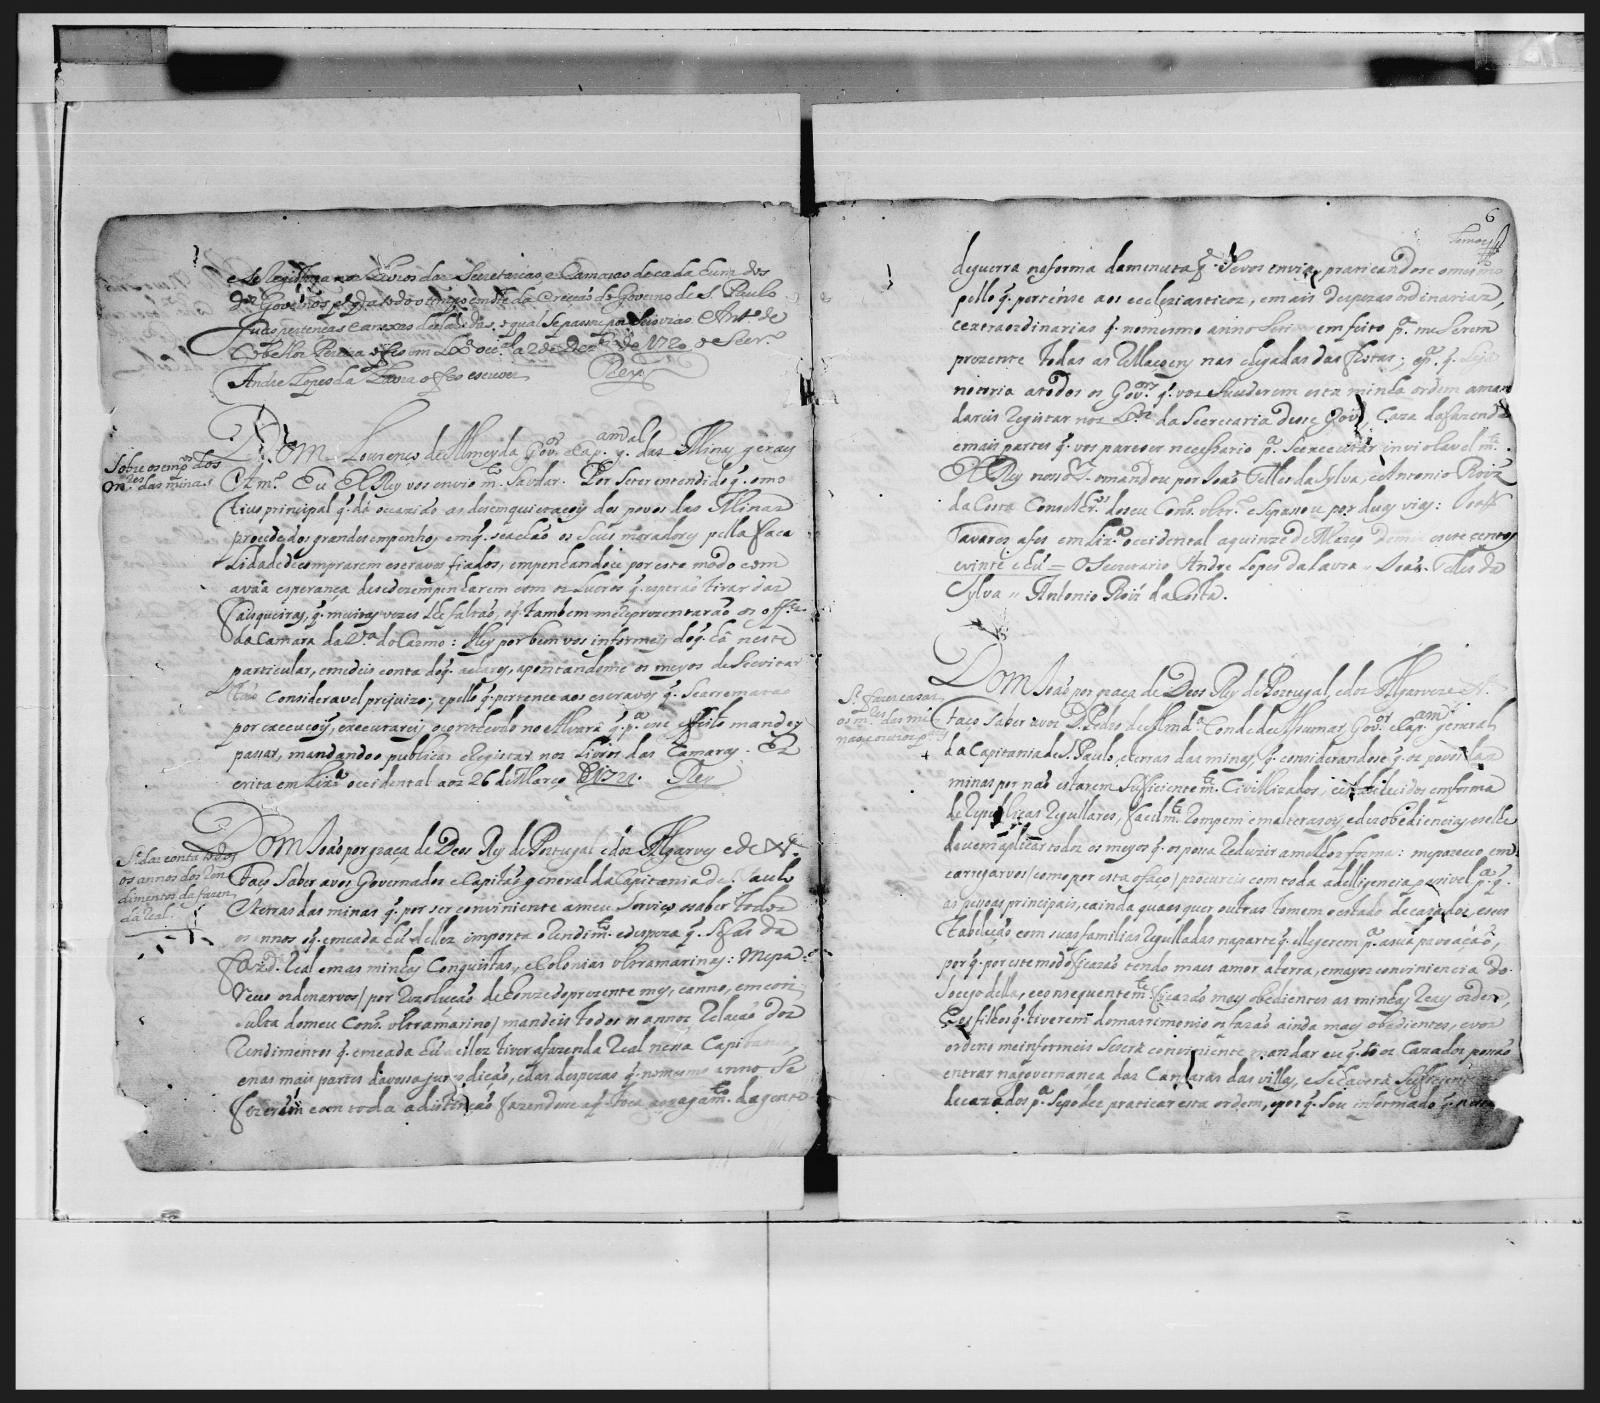 e se Registara nos Livros das Secretarias e Camaras de cada hum dos
dos Governos p.ª q. a todo o tempo conste da Creação do Governo de S. Paulo
suas pertenças e anexos e qual se passou por duas vias. Ant.º de
Cobellos Pereira o fez em Lx.ª occ.al a 2 de Dez.bro de 1720 o Secr.º
Andre Lopes da Lavra o fez escrever Rey
Sobre os emp.os dos
m.res das minas
Dom Lourenço de Almeyda Gov.or e Cap.am g.al das Minas geraes
Am.º Eu El Rey vos envio m.to saudar. Por se ter entendido q. o mo
tivo principal q. dá occazião as desemquietaçoẽs dos povos das Minas
procede dos grandes empenhos em q. se achão os seus moradores pella faca
lidade de comprarem escravos fiados, empenhandoce por este modo com
a vãa esperança de se dezempenharem com os Lucros q. esperão tirar das
faisqueiras, q. muitas vezes lhe faltão, o q. tambem me reprezentarão os off.es
da Camara da V.ª do Carmo: Hey por bem vos informeis do q. há neste
particular, e me deis conta do q. achares, apontandome os meyos de se evitar
tão Consideravel prejuizo; e pello q. pertence aos escravos q. se arrematão
por execuçoẽs, executareis, o contheudo no Alvará q. p.ª este effeito mandey
passar, mandandoo publicar e Registar nos Livros das Camaras. Es
crita em Lix.ª occidental aos 26 de Março de 1721. Rey
S.e dar conta todos
os annos dos Ren
dimentos da fazen
da Real.
Dom João por graça de Deos Rey de Portugal e dos Algarves e de &.ª
Faço saber a vos Governador e Capitão general da Capitania de S. Paulo
e terras das minas q. por ser conviniente a meu Serviço o saber todos
os annos o q. em cada hũ delles importa o rendim.to e despeza q. se faz da
faz.dª Real em as minhas Conquistas, e Colonias ultramarinas: Me pa
receo ordenarvos / por Rezolução de honze do prezente mez, e anno, em con
sulta do meu Cons.º ultramarino / mandeis todos os annos Relação dos
Rendimentos q. em cada hũ delles tiver a fazenda Real nessa Capitania
e nas mais partes da vossa jurisdicão, e das despezas q. no mesmo anno se
fizerem com toda a distinção fazendose a q. toca a o pagam.to da gente
6
de guerra na forma da minuta q. se vos envia, praticandose o mesmo
pello q. pertense aos eccleziasticos, e mais despezas ordinarias,
e extraordinarias q. no mesmo anno se tiverem feito p.ª me serem
prezente todas as Relaçoẽs nas chegadas das frotas; e p.ª q. seja
notoria a todos os Gov.ores q. vos sucederem esta minha ordem a man
dareis registar nos L.os da Secretaria desse Gov.º, Caza da fazenda
e mais partes q. vos parecer necessario p.ª se executar inviolavelm.te.
El Rey nosso S.or o mandou por João Telles da Sylva, e Antonio Roiz
da Costa Conselhr.os do seu Cons.º ultr.º e se passou por duas vias:
Tavares a fes em Lix.ª occidental a quinze de Março de mil e sete centos
e vinte e hũ = O Secretario Andre Lopes da Lavra = João Telles da
Sylva = Antonio Roiz da Costa.
S.e fazer cazar
os m.res das mi
nas e outros p.tos
Dom João por graça de Deos Rey de Portugal, e dos Algarves &.ª
Faço saber a vos D. Pedro de Almd.ª Conde de Assumar Gov.or e Cap.am general
da Capitania de S. Paulo, e terras das minas, q. considerandose q. os povos das
minas por não estarem suficientem.te Civillizados, e estabelecidos em forma
de republicas regullares, facilm.te rompem em alteraçoẽs e dezobediencias e se lhe
devem aplicar todos os meyos q. os possa reduzir a melhor forma: me pareceo em
carregarvos / como por esta o faço / procureis com toda a delligencia possivel p.ª q.
as pessoas principais, e ainda quaes quer outras tomem o estado de cazados, e se es
tabelução com suas familias reguladas na parte q. ellegerem p.ª a sua povoação,
por q. por este modo ficarão tendo mais amor a terra, e mayor conviniencia do
socego della, e consequentem.te ficarão mays obedientes as minhas reays ordens,
e os filhos q. tiverem do matrimonio os farão ainda mays obedientes, e vos
ordeno me informeis se será conviniente mandar eu q. só os Cazados possão
entrar na governança das Camaras das villas, e se haverá suficiente
de cazados p.ª se poder praticar esta ordem, e por q. sou informado q. nessas